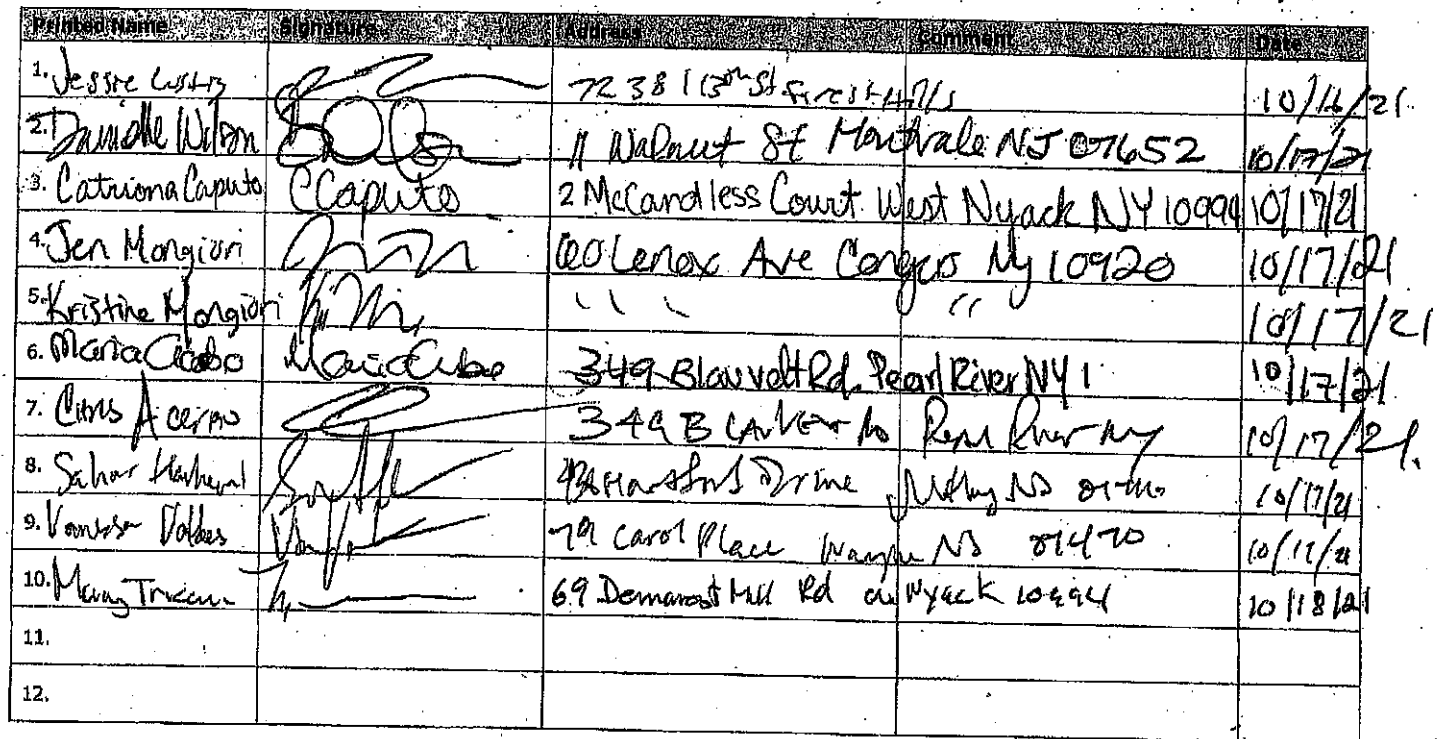 Printed Name Signature Address Comment Date
1. Jessie 72 38 113th St Forest Hills 10/16/21
2. Danielle Wilson 11 Walnut St Montvale NJ 07652 10/17/21
3. Catriona Caputo CCaputo 2 McCandless Court West Nyack NY 10994 10/17/21
4. Jen Mongiori 60 Lenox Ave Congers Ny 10920 10/17/21
5. Kristine Mongiori " " 10/17/21
6. Maria 349 Blauvelt Rd. Pearl River NY 1 10/17/21
7. Chris Acerno 349 B Pearl River Ny 10/17/21.
8. Sahar Drive 10/17/21
9. Vanessa 79 Carol Place Wayne NJ 07470 10/17/21
10. Mary 69 Demarest Mill Rd W Nyack 10994 10/18/21
11.
12.